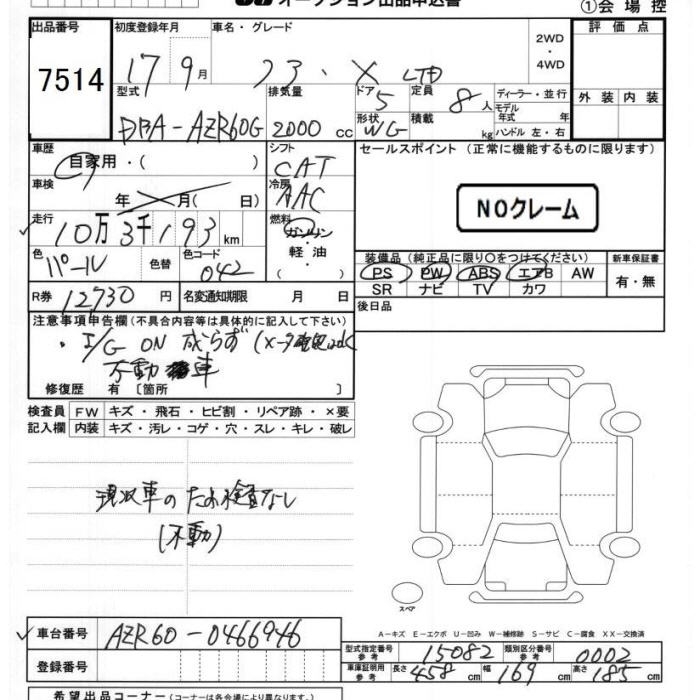 オークション出品申込書
①会場控
出品番号
7514
初度登録年月
17 9月
車名・グレード
ノア・X LTD
2WD
・
4WD
評価点
外装 内装
型式
DBA-AZR60G
排気量
2000 cc
ドア 5
形状 WG
定員 8人
積載 kg
ディーラー・並行
モデル年式 年
ハンドル 左・右
車歴
自家用・( )
シフト
CAT
セールスポイント (正常に機能するものに限ります)
NOクレーム
車検
年 月( 日)
冷房
AAC
走行
10万3千193km
燃料
ガソリン
・
軽油
( )
色
パール
色替
色コード
042
装備品 (純正品に限り○をつけてください)
PS PW ABS エアB AW
SR ナビ TV カワ
新車保証書
有・無
R券 12730円
名変通知期限 月 日
後日品
注意事項申告欄 (不具合内容等は具体的に記入して下さい)
・I/G ON 成らず
不動 車
修復歴 有 〔箇所 〕
検査員 FW キズ・飛石・ヒビ割・リペア跡・×要
記入欄 内装 キズ・汚レ・コゲ・穴・スレ・キレ・破レ
現状車のため検査なし
(不動)
スペア
A-キズ E-エクボ U-凹み W-補修跡 S-サビ C-腐食 XX-交換済
車台番号 AZR60-0466946
登録番号
型式指定番号 参考 15082
類別区分番号 参考 0002
車庫証明用 参考 長さ 458cm 幅 169cm 高さ 185cm
希望出品コーナー (コーナーは各会場により異なります。)